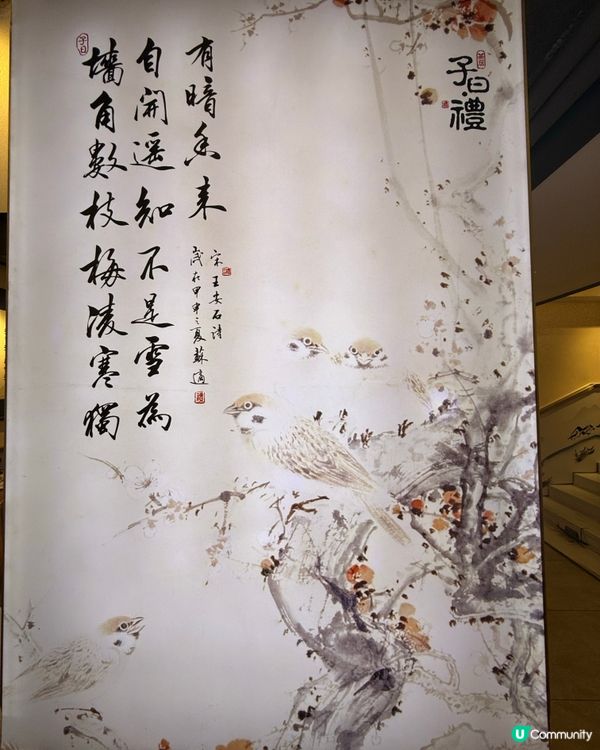 子曰
墻角數枝梅凌寒獨
自開遥知不是雪為
有暗香来
宋王安石詩
歲在甲申之夏蘇適
子曰·禮
U Community